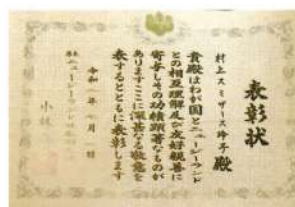 表彰状
村上スミザース玲子殿
貴殿はわが国とニュージーランド
との相互理解及び友好親善に
寄与しその功績顕著なものが
ありますここに深甚なる敬意を
表するとともに表彰します
令和 年 月 日
ニュージーランド
小林